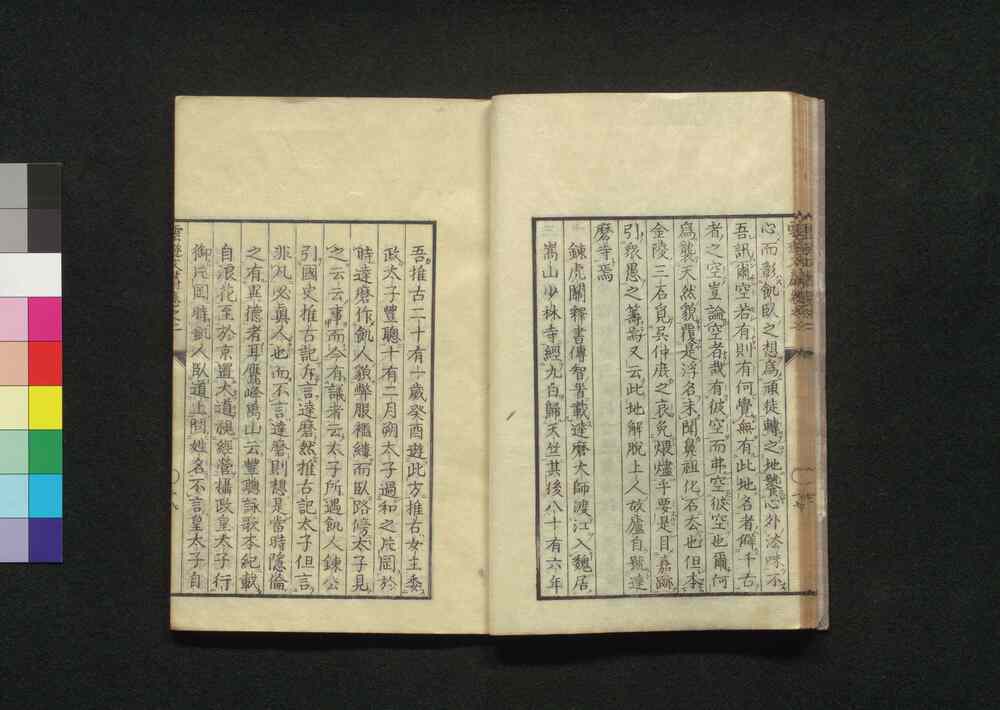 心而彰飢臥之想為頑徒轉之地褩心外法呼不
吾訊爾空若有則有何覺無有此地名者僻千古
者之空豈論空者哉有彼空而弗空彼空也爾何
為襲天然貌覆是浮名未聞鼻祖化石去也但本
金陵三石覓吳仲庶之哀免煨爐乎要是目嘉蹟
引衆愚之籌焉又云此地解脫上人故廬自號達
磨寺焉
鍊虎關釋書傳智首載達磨大師渡江入魏居
嵩山少林寺經九白歸天竺其後八十有六年
吾推古二十有一歲癸酉遊此方推古女主委
政太子豐聰十有二月朔太子過和之片岡於
時達磨作飢人貌弊服襤縷而臥路傍太子見
之云云事而今有議者云太子所遇飢人鍊公
引國史推古記斥言達磨然推古記太子但言
非凡必真人也而不言達磨則想是當時隱倫
之有異德者耳鷹峰嵩山云豐聰詠歌本紀載
自浪花至於京置大道襪經營攝政皇太子行
御片岡時飢人臥道上問姓名不言皇太子自